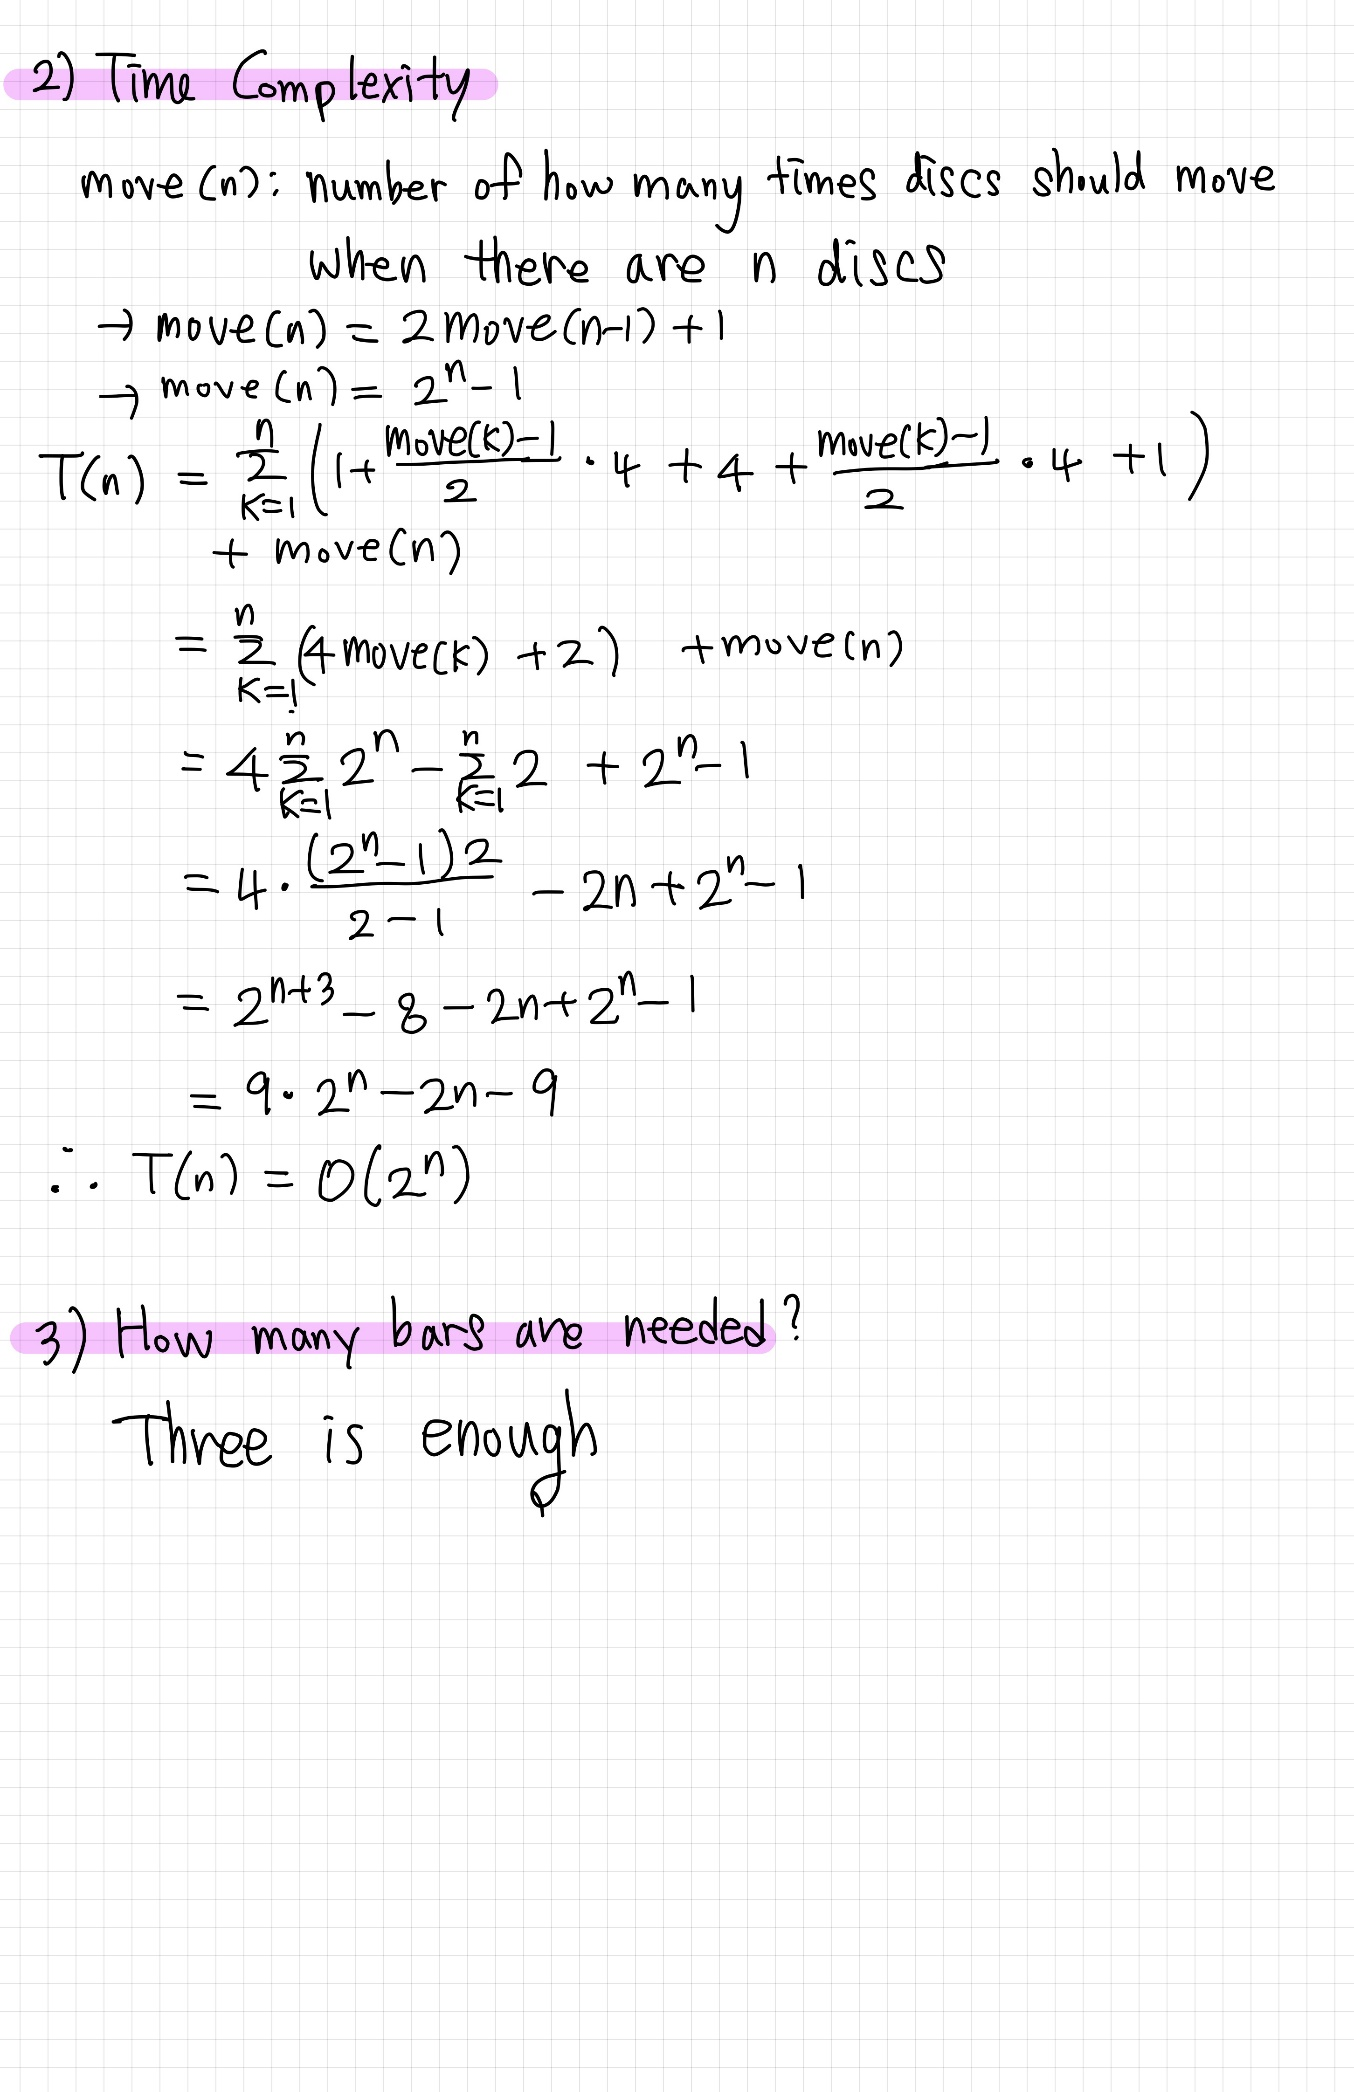 2) Time Complexity
move(n): number of how many times discs should move
when there are n discs
→ move(n) = 2move(n-1) + 1
→ move(n) = 2^n - 1
T(n) = Σ_{k=1}^{n} (1 + (move(k)-1)/2 · 4 + 4 + (move(k)-1)/2 · 4 + 1)
+ move(n)
= Σ_{k=1}^{n} (4move(k) + 2) + move(n)
= 4 Σ_{k=1}^{n} 2^n - Σ_{k=1}^{n} 2 + 2^n - 1
= 4 · ((2^n - 1)2)/(2-1) - 2n + 2^n - 1
= 2^{n+3} - 8 - 2n + 2^n - 1
= 9 · 2^n - 2n - 9
∴ T(n) = O(2^n)
3) How many bars are needed?
Three is enough